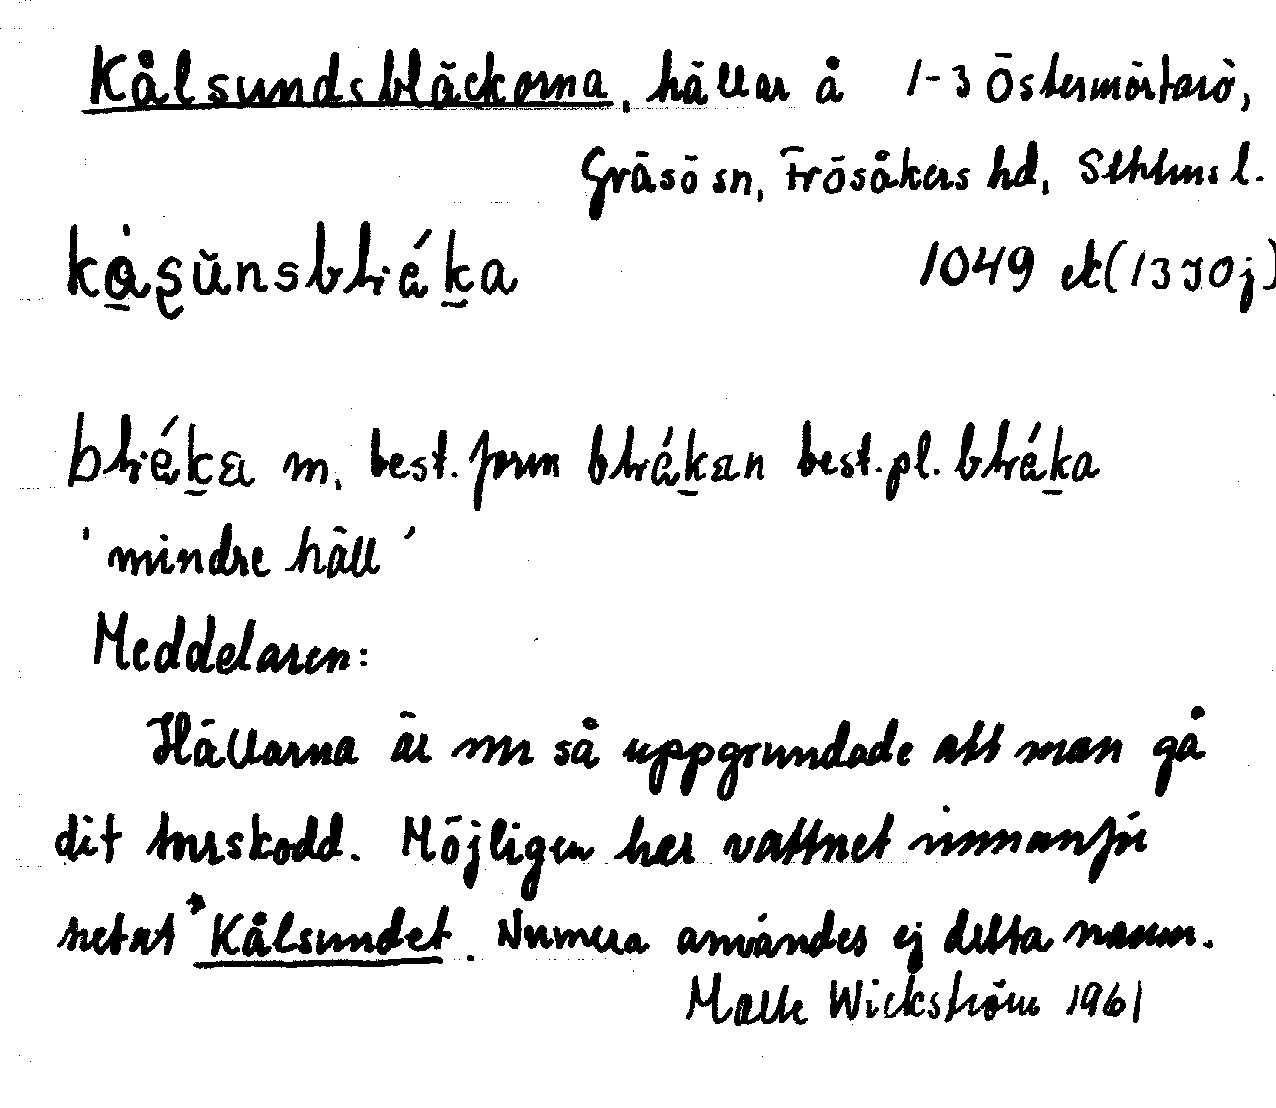 Kålsundsbläckorna, hällar å 1-3 Östermörtarö,
Gräsö sn, Frösåkers hd, Sthlms l.
kå̀s̨ŭnsbbréḵa 1049 ek(13 I 0j)
bbréḵa m. best. form bbréḵan best. pl. bbréḵa
'mindre häll'
Meddelaren:
Hällarna är nu så uppgrundade att man gå
dit torrskodd. Möjligen har vattnet innanför
hetat Kålsundet. Numera användes ej detta namn.
Malte Wickström 1961